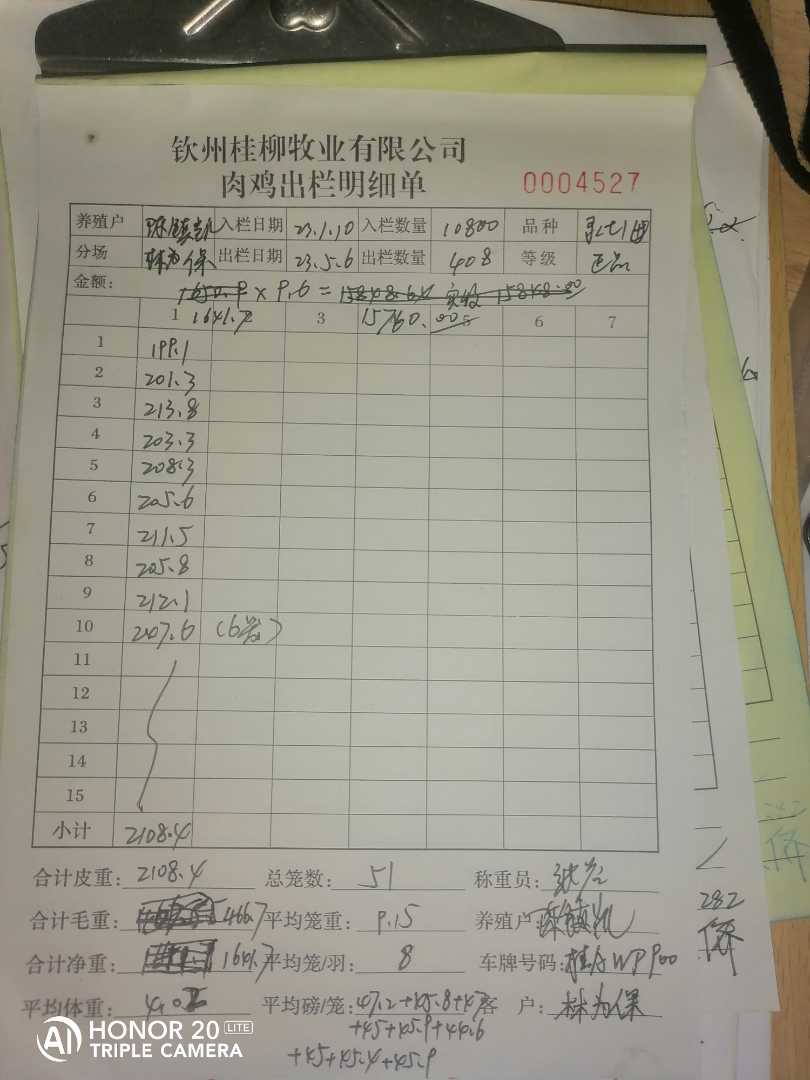 钦州桂柳牧业有限公司
肉鸡出栏明细单 0004527
养殖户 入栏日期 23.1.10 入栏数量 10800 品种
分场 林为保 出栏日期 23.5.6 出栏数量 408 等级 正品
金额: 1650.9 × 9.6 = 15848.64 实收 15848.00
1641.7 15760.00
1 2 3 5 6 7
1 199.1
2 201.3
3 213.8
4 203.3
5 208.3
6 205.6
7 211.5
8 205.8
9 212.1
10 247.6 (6笼)
11
12
13
14
15
小计 2108.4
合计皮重: 2108.4 总笼数: 51 称重员:
合计毛重: 466.7 平均笼重: 9.15 养殖户:
合计净重: 1641.7 平均笼/羽: 8 车牌号码: WP900
平均体重: 4.02 平均磅/笼: 47.2+45.8+47 客 户: 林为保
+45+45.9+44.6
+45+45.4+45.9
282
HONOR 20 LITE
TRIPLE CAMERA